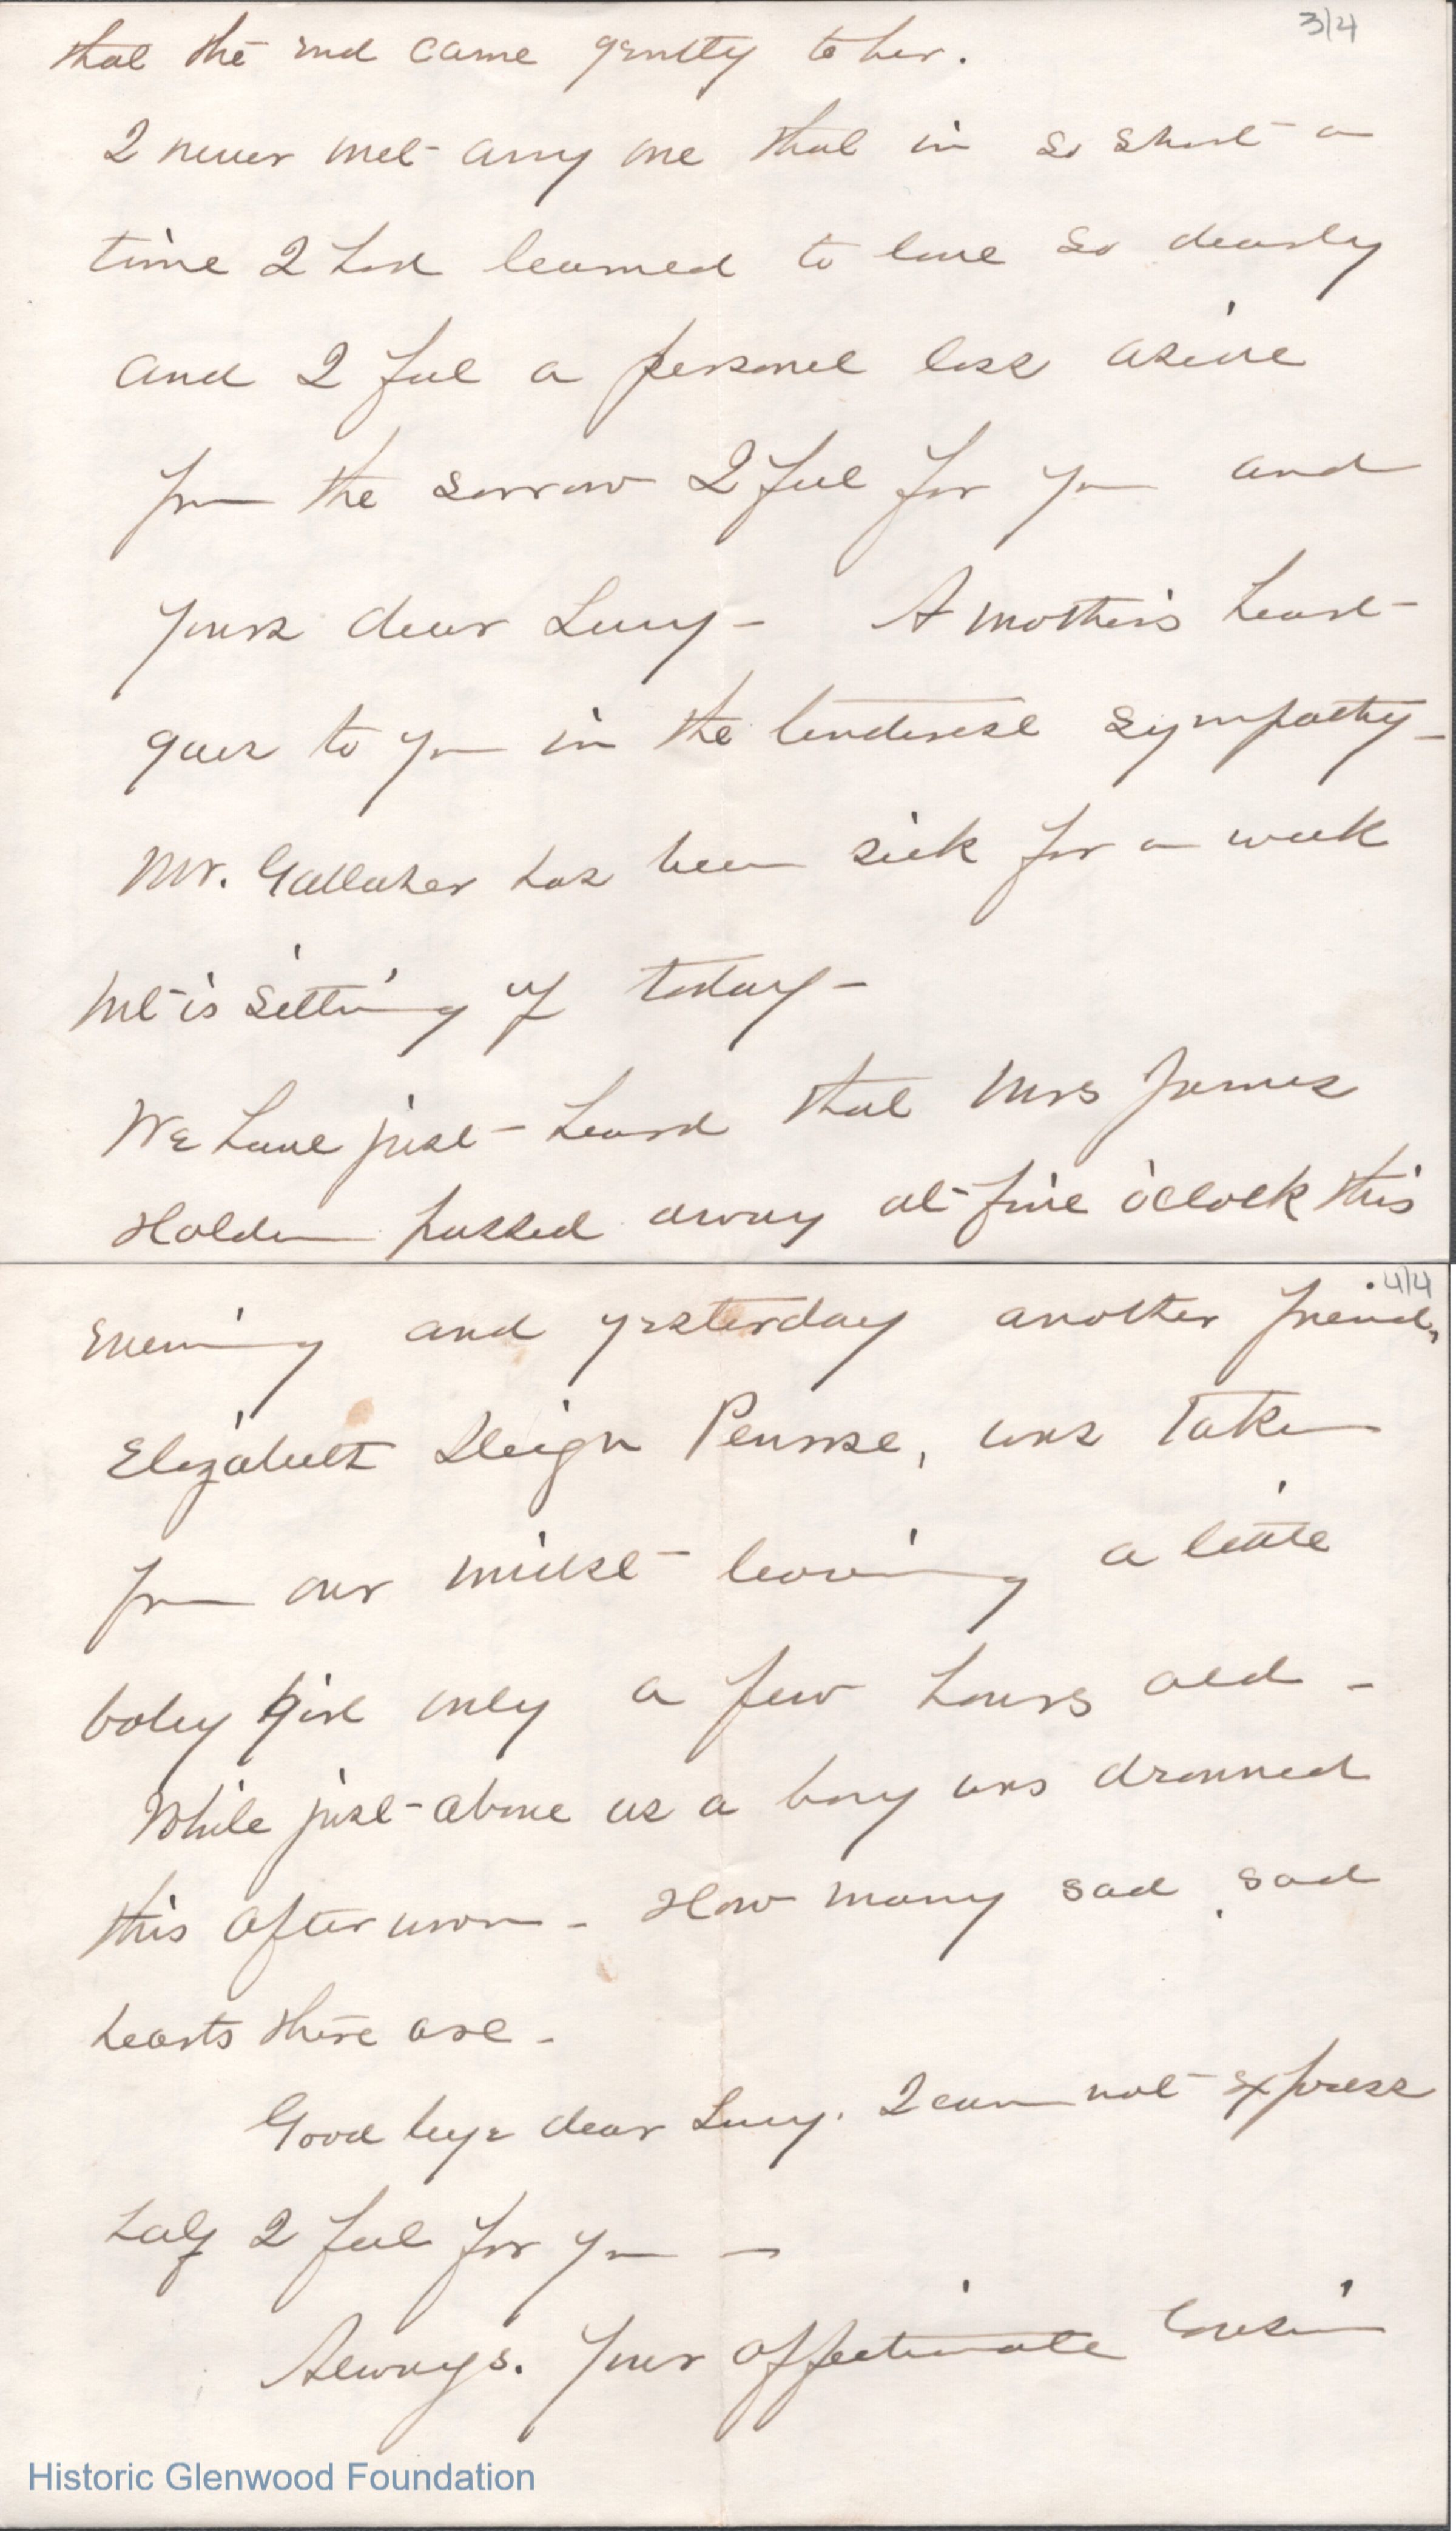 3/4
that the end came gently to her.
I never met any one that in so short a
time I had learned to love so dearly
and I feel a personel loss aside
from the sorrow I feel for you and
yours dear Lucy - A mother's heart
goes to you in the tenderest sympathy -
Mr. Gallaher has been sick for a week
but is sitting up today -
We have just heard that Mrs James
Holden passed away at five o'clock this
4/4
evening and yesterday another friend,
Elizabeth Sleigh Penrose, was taken
from our midst leaving a little
baby girl only a few hours old -
While just above us a boy was drowned
this afternoon - How many sad, sad
hearts there are -
Good bye dear Lucy. I can not express
half I feel for you -
Always. Your affectionate Cousin
Historic Glenwood Foundation